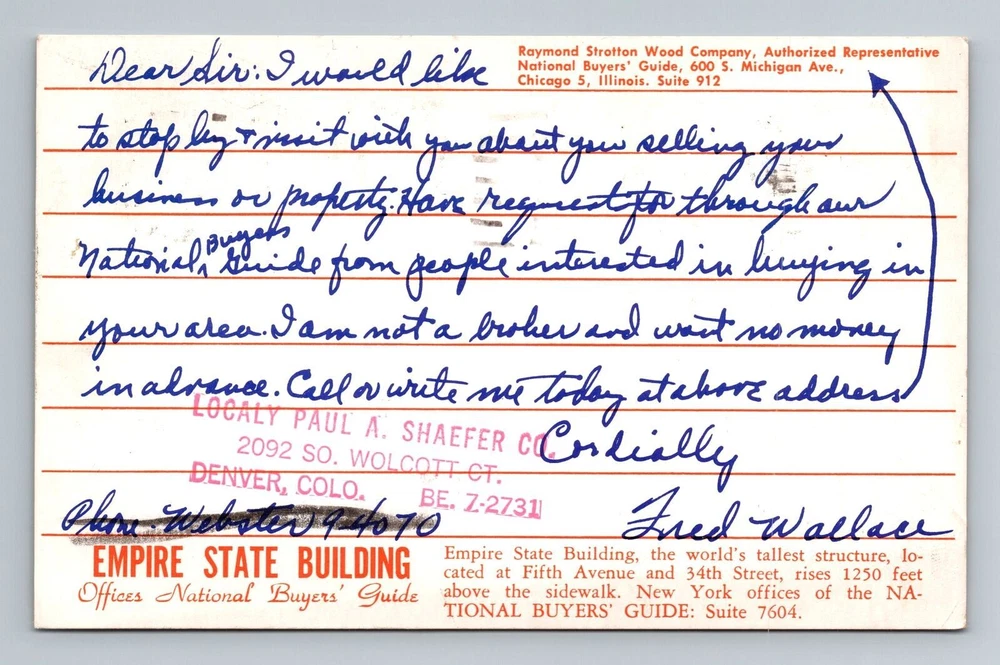 Raymond Strotton Wood Company, Authorized Representative
National Buyers' Guide, 600 S. Michigan Ave.,
Chicago 5, Illinois. Suite 912
Dear Sir: I would like
to stop by & visit with you about you selling your
business or property. Have request for through our
National Buyers Guide from people interested in buying in
your area. I am not a broker and want no money
in advance. Call or write me today at above address
LOCALY PAUL A. SHAEFER CO.
2092 SO. WOLCOTT CT.
DENVER, COLO. BE. 7-2731
Cordially
Phone. Webster 9-4070
Fred Wallace
EMPIRE STATE BUILDING
Offices National Buyers' Guide
Empire State Building, the world's tallest structure, lo-
cated at Fifth Avenue and 34th Street, rises 1250 feet
above the sidewalk. New York offices of the NA-
TIONAL BUYERS' GUIDE: Suite 7604.